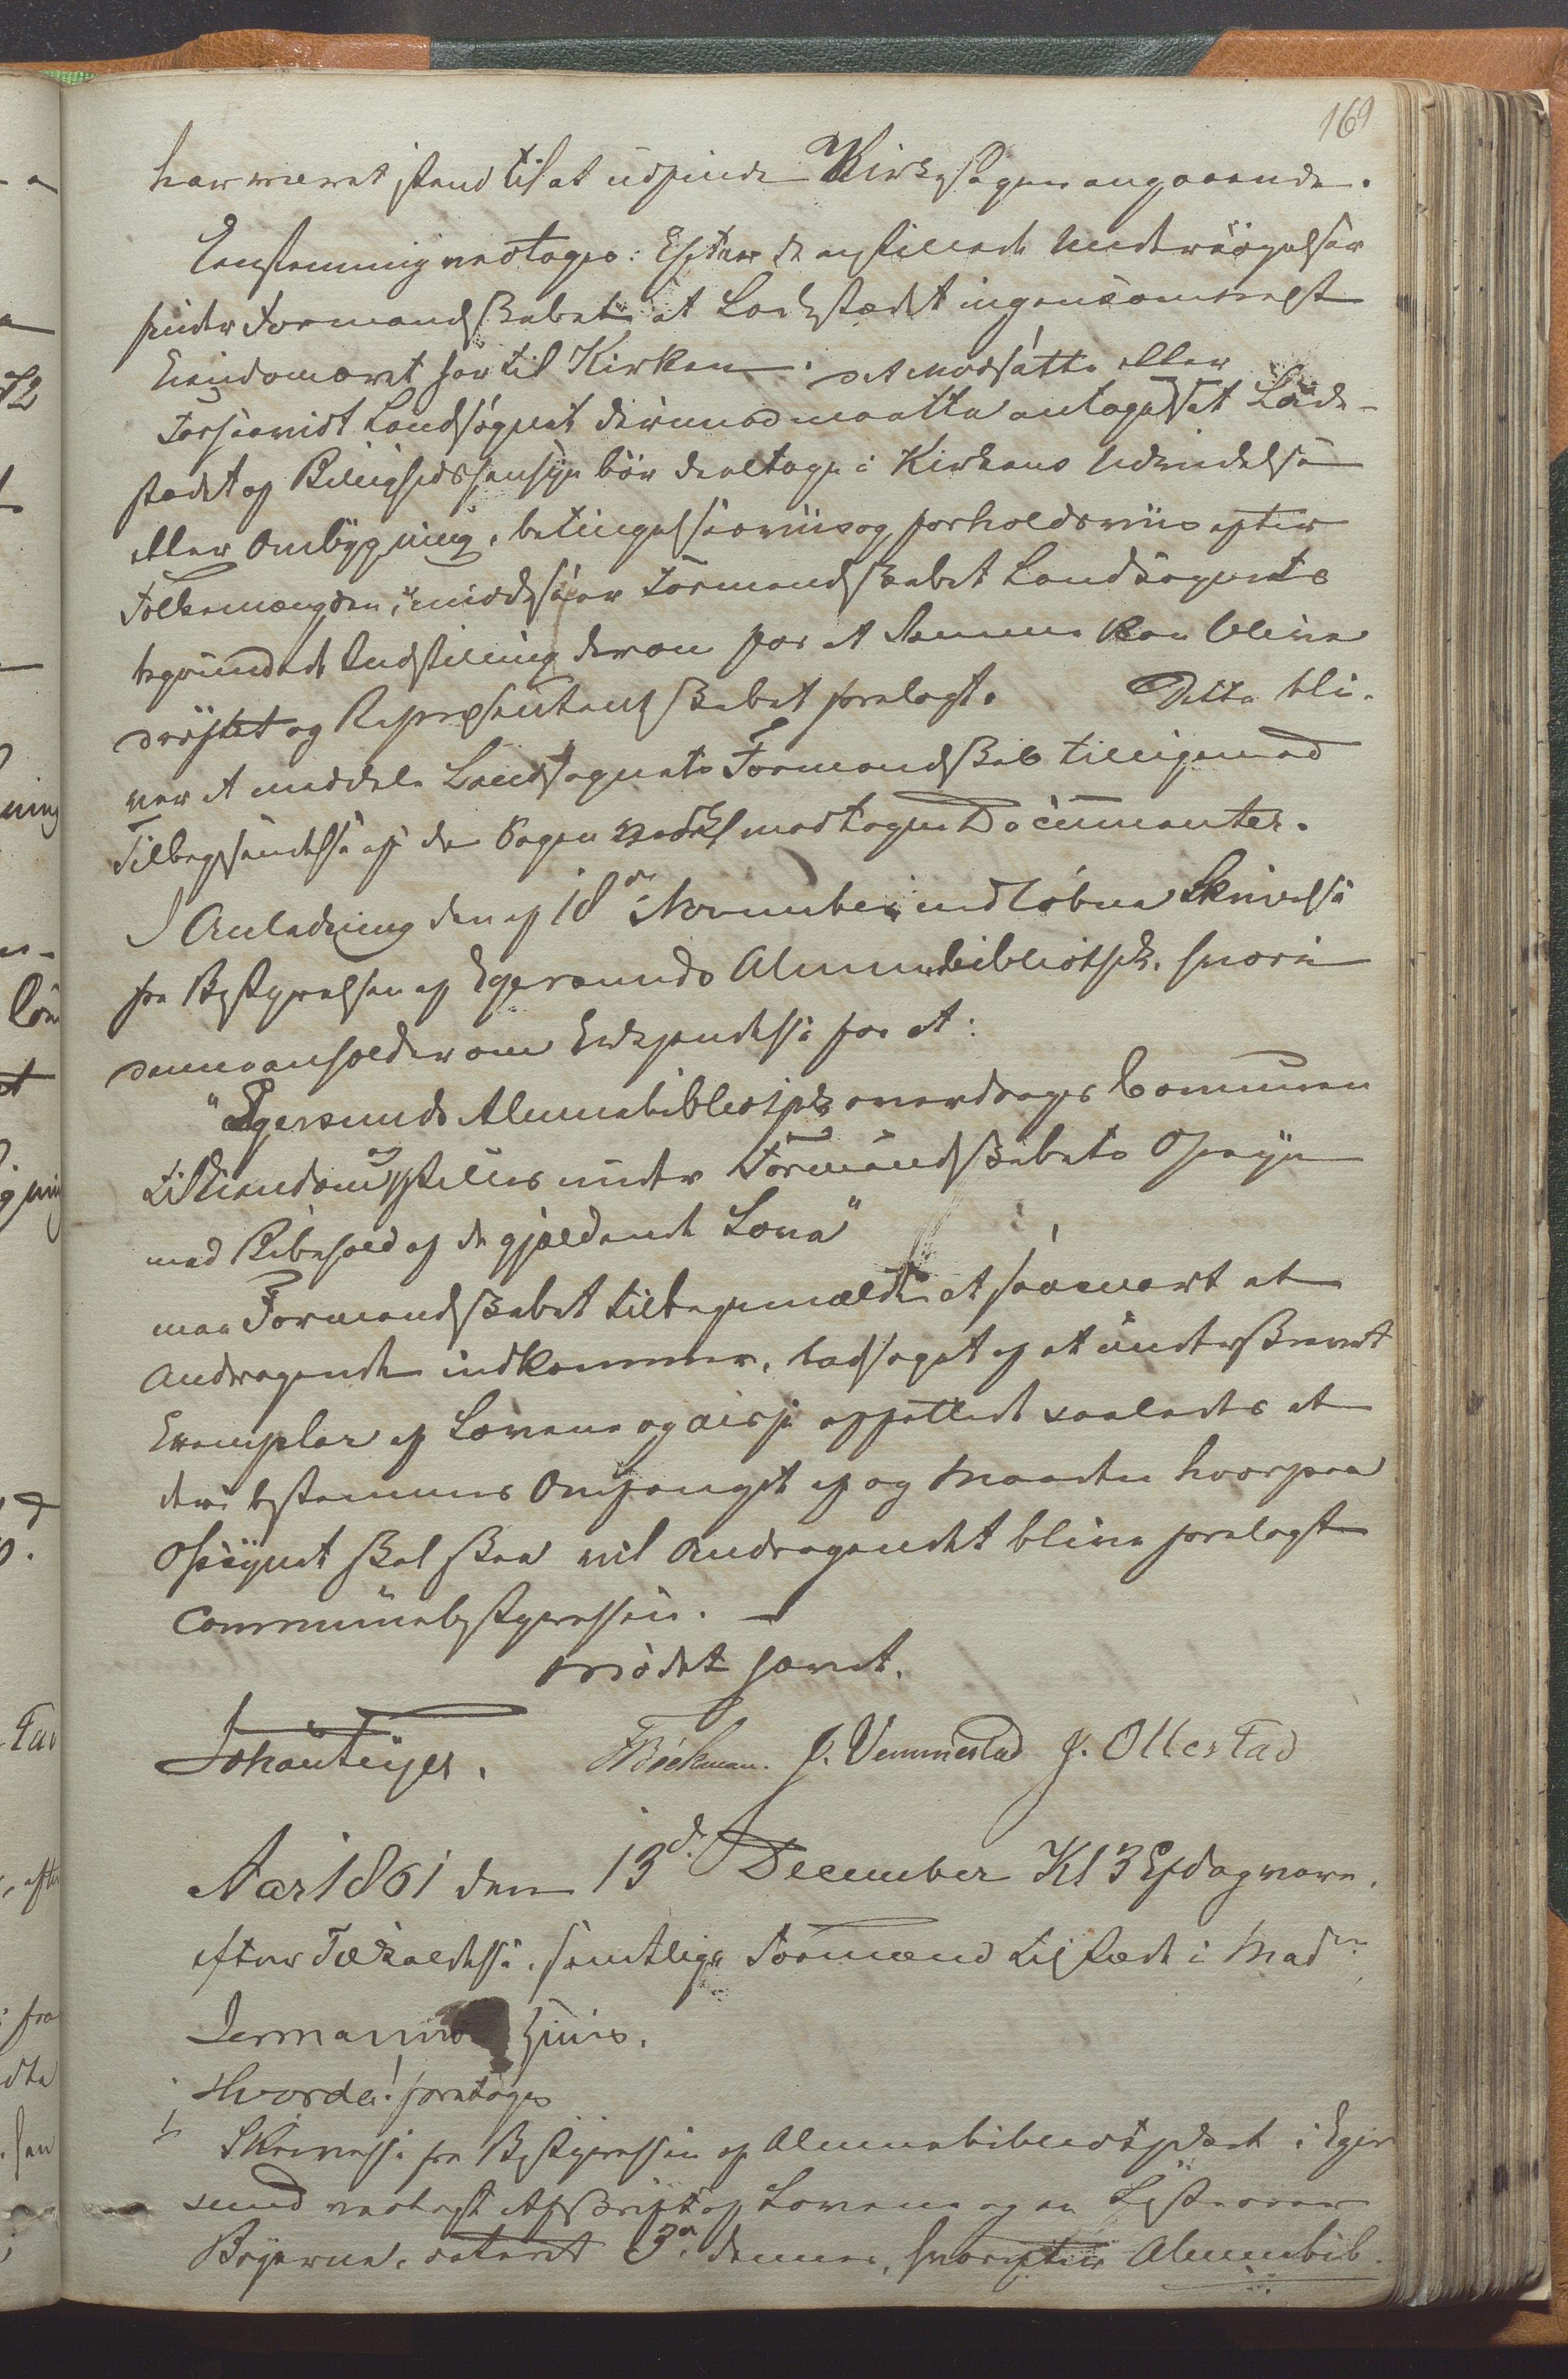 169
har været istand til at udfinde Kirkesagen angaaende.
Eenstemmig vedtoges: Efter de anstillede Undersögelser
finder Formandskabet at Ladestædet ingensomhelst
Eiendomsret har til Kirken. Det modsatte eller
Forsaavidt Landsognet derimod maatte antage at Lade-
stædet af Billighedshensyn bör deeltage i Kirkens Udvidelse
eller Ombygning, betingelsesviis og forholdsviis efter
Folkemængden, imødeseer Formandskabet Landsognets
begrundede Indstilling derom for at samme kan blive
dröftet og Repræsentantskabet forelagt. Dette bli-
ver at meddele Landsognets Formandskab tilligemed
Tilbagesendelse af de Sagen vedk. modtagne Documenter.
I Anledning den af 18de November indløbne Skrivelse
fra Bestyrelsen af Egersunds Almuebibliothek, hvori
denne anholder om Erkjendelse for at:
"Egersunds Almuebibliothek overdrages Communen
til Eiendom og stilles under Formandskabets Opsyn
med Bibehold af de gjældende Love"
maa Formandskabet tilbagemælde at saasnart et
Andragende indkommer, ledsaget af et underskrevet
Exemplar af Lovene og disse affattede saaledes at
deri bestemmes Omfanget af og Maaden hvorpaa
Opsynet skal skee vil Andragendet blive forelagt
Communebestyrelsen.
Mødet hævet.
Johan Feyer. F Böckman. J. Vemmestad J. Ollestad
Aar 1861 den 13de December Kl 3 Efdag vare,
efter Tilkaldelse, samtlige Formænd tilstæde i Madme
Jermanns Huus.
Hvorda! foretoges
1, Skrivelse fra Bestyrelsen af Almuebibliotheket i Eger
sund vedlagt Afskrift af Lovene og en Liste over
Bøgerne, dateret 3de dennes, hvorefter Almuebib.